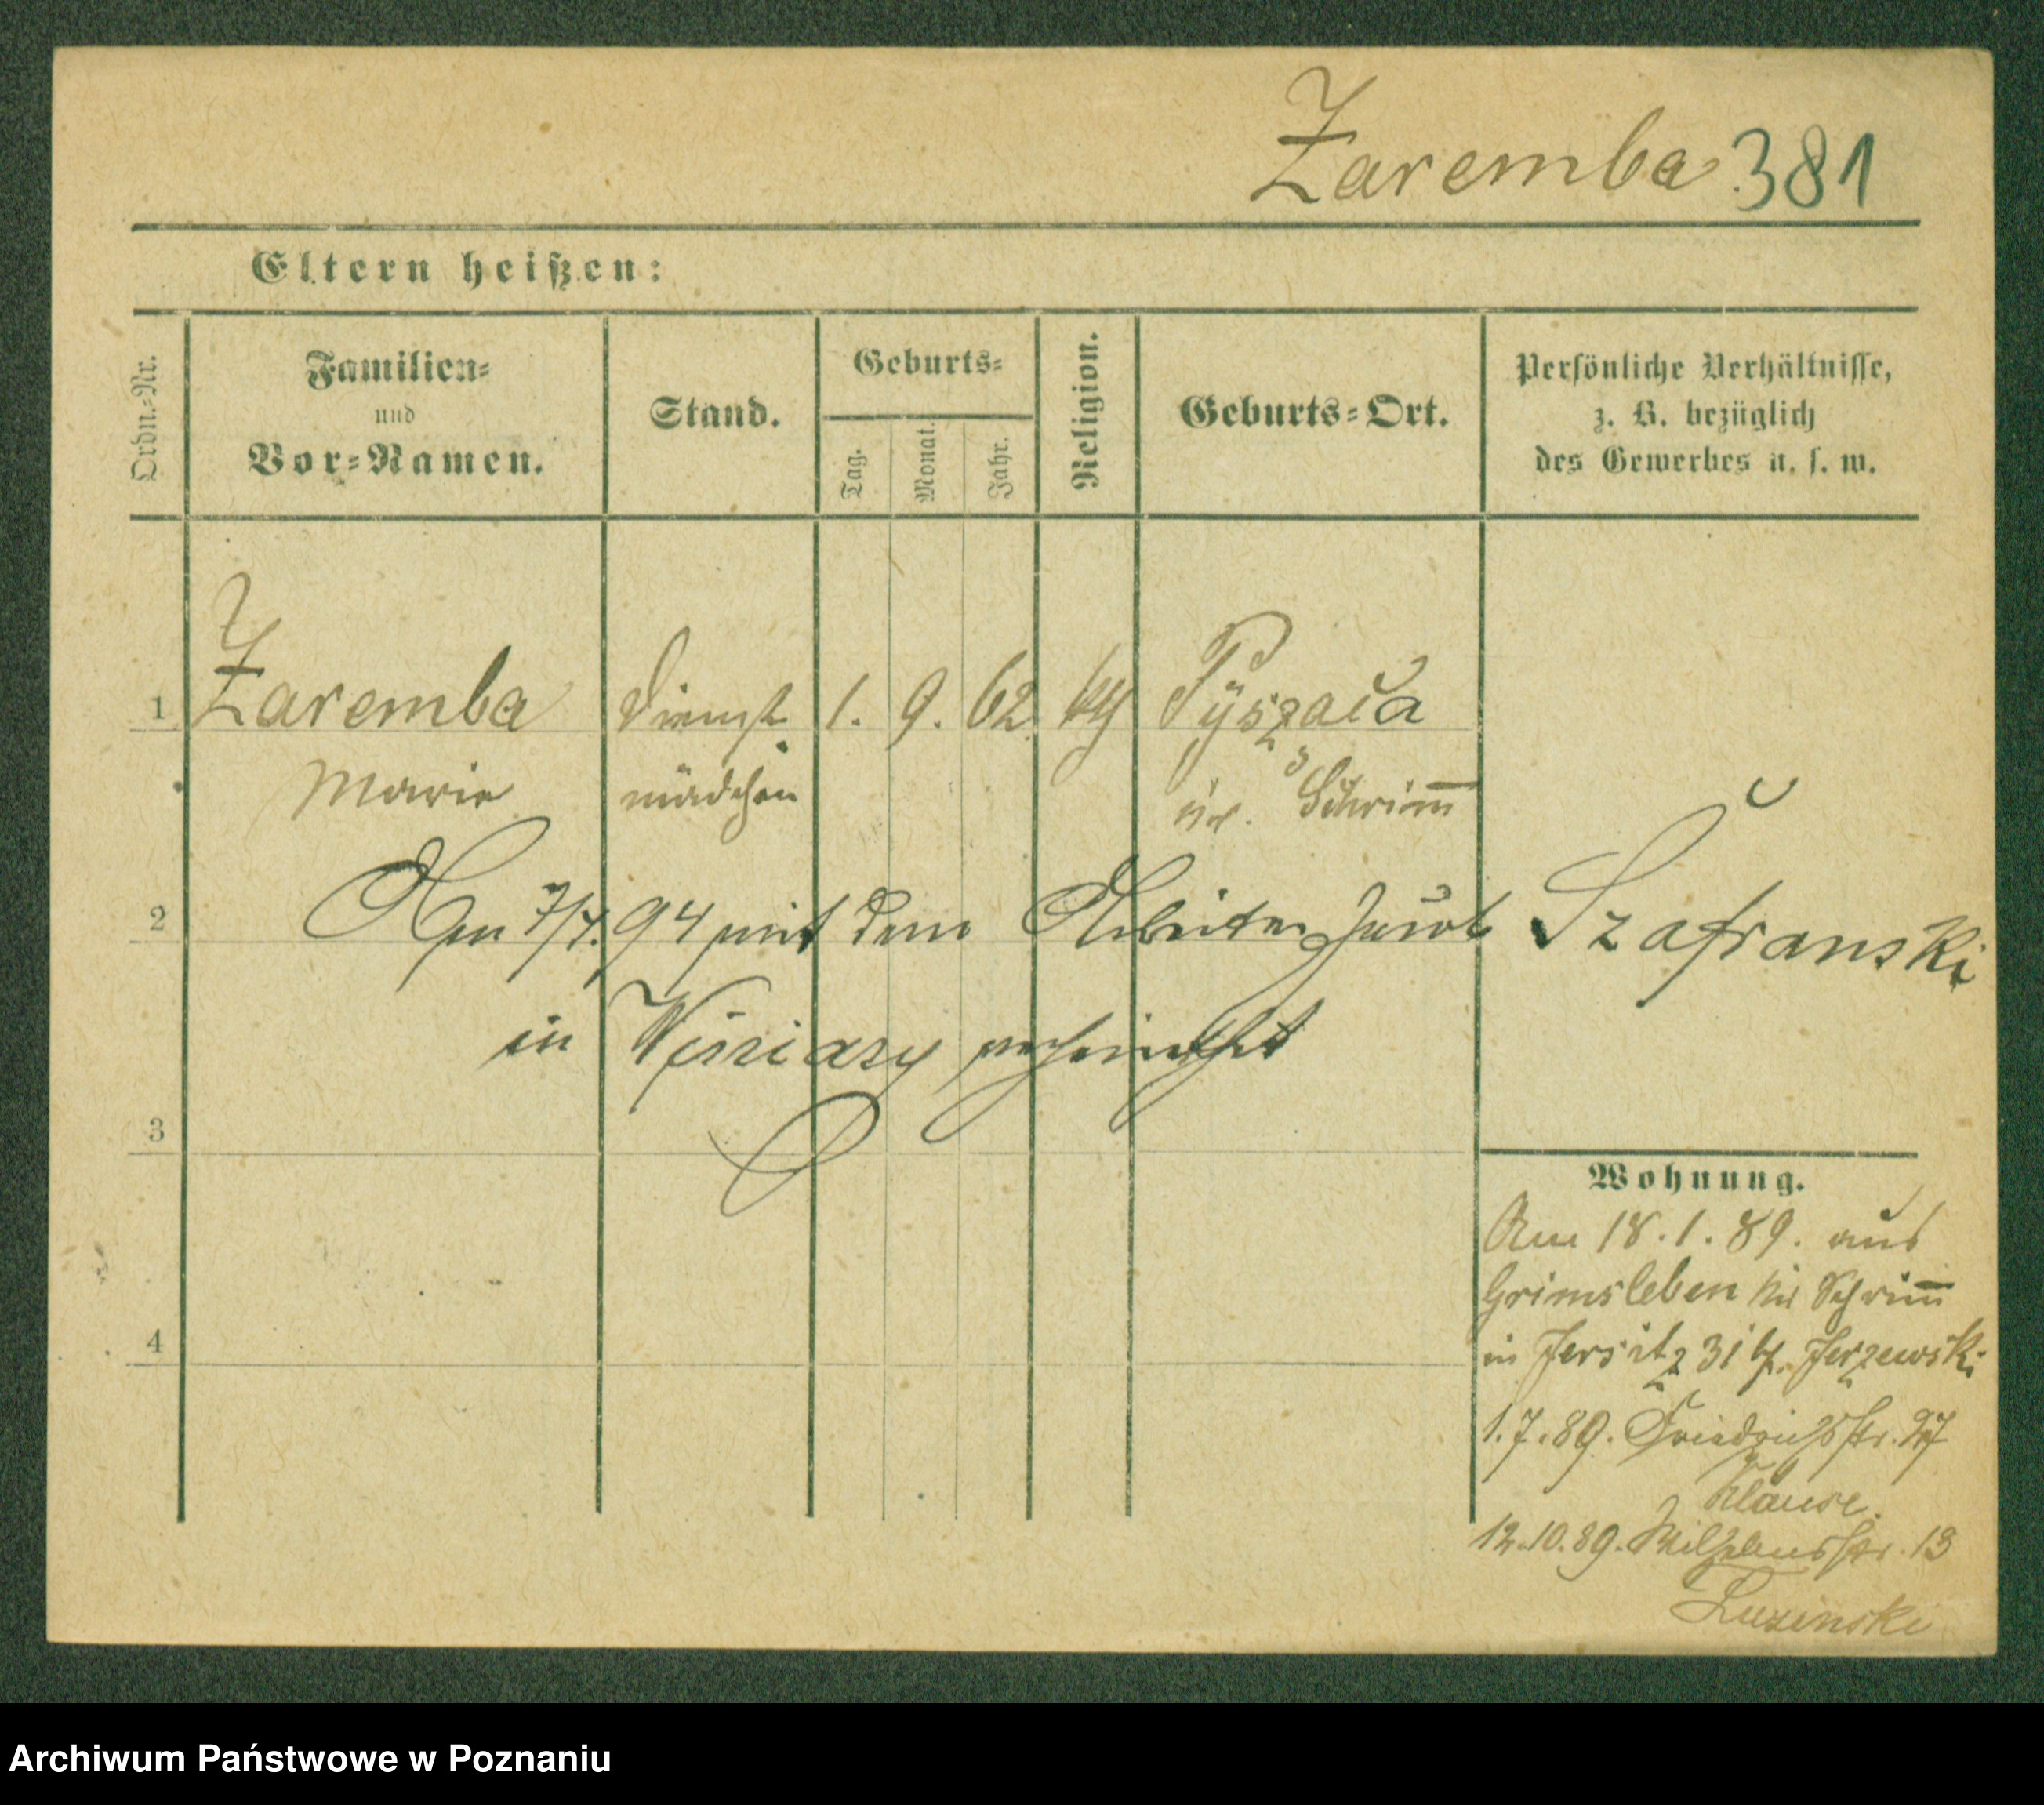 Zaremba 381
Eltern heißen:
Ordn.-Nr.
Familien-
und
Vor-Namen.
Stand.
Geburts-
Tag.
Monat.
Jahr.
Religion.
Geburts-Ort.
Persönliche Verhältnisse,
z. B. bezüglich
des Gewerbes u. s. w.
1 Zaremba Dienst 1. 9. 62 kth
Marie mädchen Schrimm
2 Am 7/4. 94 mit dem Arbeiter Jacob Szafranski
in Winiary verheirathet
3
Wohnung.
Am 18.1.89. aus
Grimsleben Kr Schrimm
4
in Jersitz 31 b. Jerzewski
1.7.89. Friedrichstr. 27
Klause.
12.10.89. Wilhelmsstr. 13
Luzinski
Archiwum Państwowe w Poznaniu